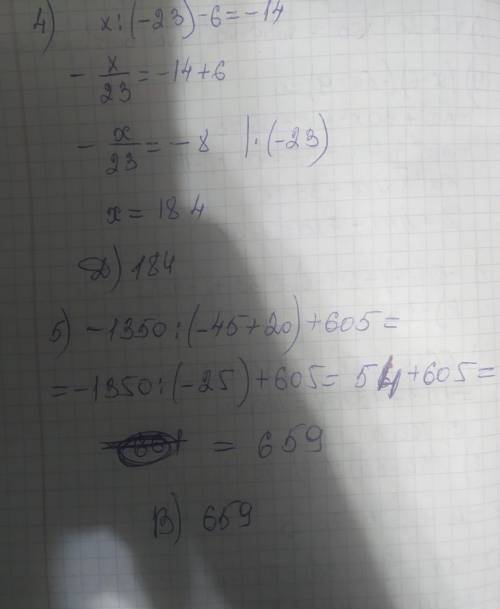 4) x:(-23)-6=-14
- x/23 = -14+6
- x/23 = -8 |·(-23)
x = 184
Д) 184
5) -1350:(-45+20)+605=
=-1350:(-25)+605= 54+605=
= 659
В) 659